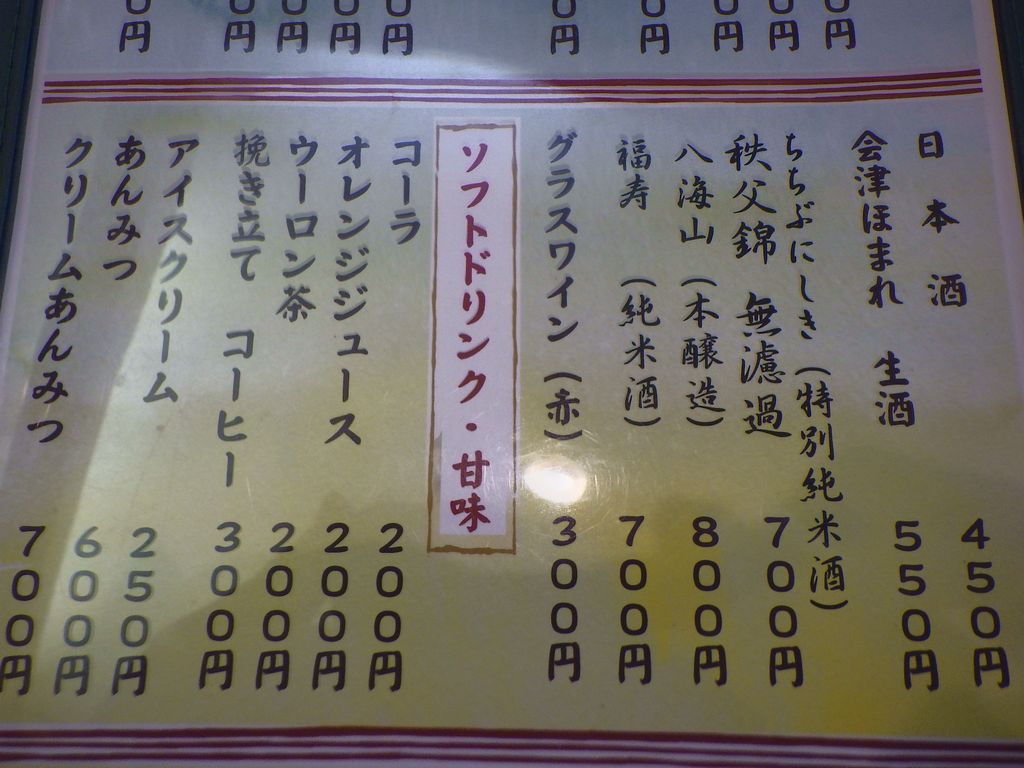 日本酒 450円
会津ほまれ 生酒 550円
ちちぶにしき(特別純米酒)
秩父錦 無濾過 700円
八海山(本醸造) 800円
福寿 (純米酒) 700円
グラスワイン(赤) 300円
ソフトドリンク・甘味
コーラ 200円
オレンジジュース 200円
ウーロン茶 200円
挽き立て コーヒー 300円
アイスクリーム 250円
あんみつ 600円
クリームあんみつ 700円